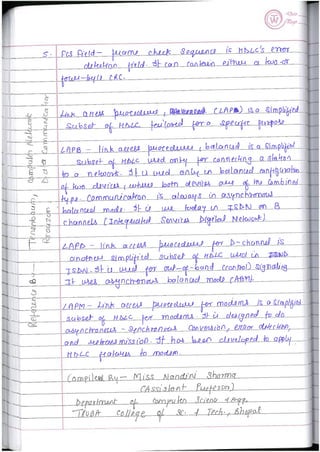 5. FCS Field - frame check sequence is HDLC's error
detection field. It can contain either a two or
four-byte CRC.
Link access procedure, (LAP) is a simplified
subset of HDLC tailored for a specific purpose
LAPB - link access procedure, balanced is a simplified
subset of HDLC used only for connecting a station
to a network. It is used only in balanced configuration
of two devices, where both devices are of the combined
type. Communication is always in asynchronous
balanced mode. It is use today in ISDN on B
channels (Integrated Services Digital Network)
LAPD - link access procedure for D-channel is
another simplified subset of HDLC used in
ISDN. It is used for out-of-band (control) signaling
It uses asynchronous balanced mode (ABM).
LAPM - Link access procedure for modems is a simplified
subset of HDLC for modems. It is designed to do
asynchronous - synchronous conversion, error detection,
and retransmission. It has been developed to apply
HDLC features to modem
Compiled By - Miss Nandini Sharma
(Assistant Professor)
Department of Computer Science & Engg.
TRUBA College of Sc. & Tech., Bhopal
Reference B - Tanenbaum, Computer Network
Forouzan, Data Communication